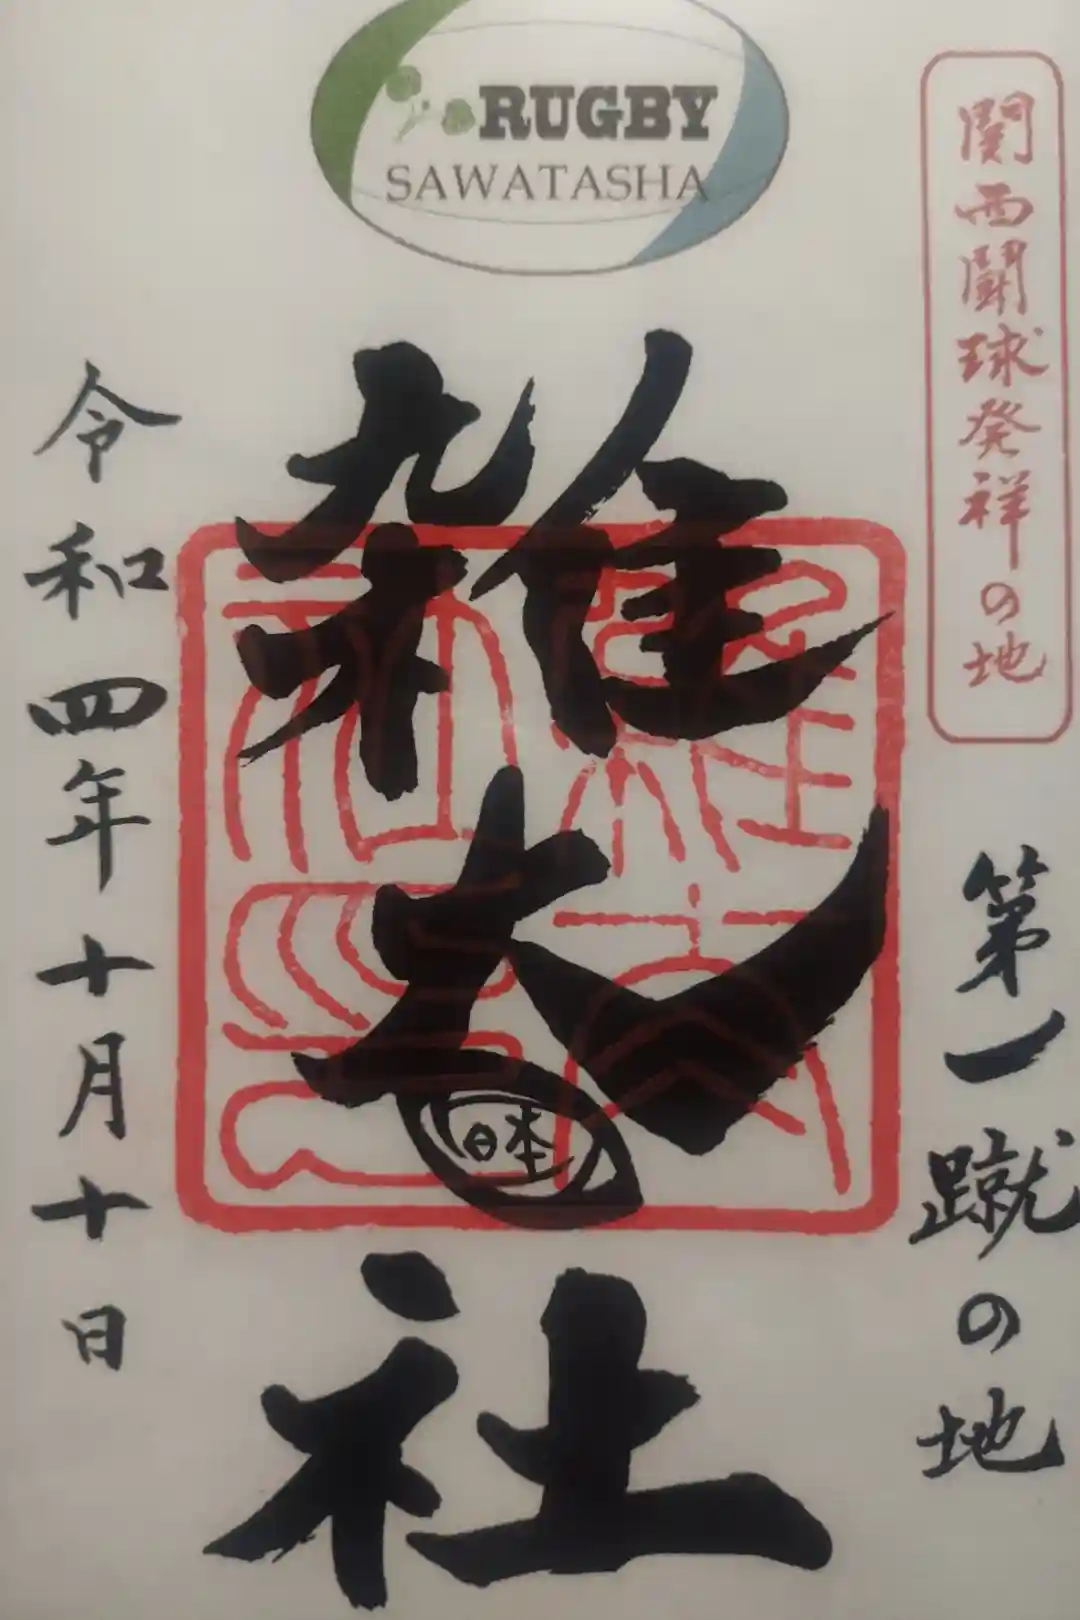 RUGBY
SAWATASHA
関西闘球発祥の地
第一蹴の地
雑太社
日本
令和四年十月十日